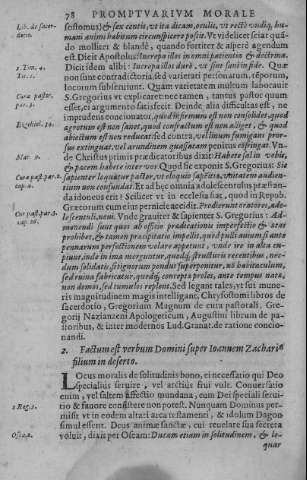 78 PROMPTVARIVM MORALE
Lib. de sacer-
dotio.
sessionis) & sex centis, vt ita dicam, oculis, vt recte vndiq; hu-
mani animi habitum circunspicere possit. Vt videlicet sciat quã-
do molliter & blandè, quando fortiter & asperè agendum
est. Dicit Apostolus: Increpa illos in omni patientia & doctrina.
1. Tim. 4.
Tit. 1.
Dicit idem alibi: Increpa illos durè, vt sint sani in fide. Quæ
non sunt contradictoria, sed varietati personarum, tẽporum,
locorum subseruiunt. Quam varietatem multum laborauit
Cura pastor.
par. 3.
S. Gregorius vt explicaret: nec tamen, tantus pastor quum
esset, ei argumento satisfecit. Deinde alia difficultas est, ne
imprudens concionator, quod infirmum est non consolidet, quod
Ezechiel. 34.
ægrotum est non sanet, quod confractum est non alliget, & quod
abiectum est non reducat: sed contra, vel linum fumigans pror-
sus extinguat, vel arundinem quassatam penitus effringat. Vn-
Mar. 9.
de Christus primis prædicatoribus dixit: Habete sal in vobis,
& pacem habete inter vos. Quod sic exponit S. Gregorius: Sic
Cura past. par.
sapienter loquatur pastor, vt eloquio sapientia, vnitatem audien-
tium non confundat. Et ad hęc omnia adolescentulus præstan-
da idoneus erit? Scilicet vt in ecclesia fiat, quod in Repub.
Græcorum cum eius pernicie accidit. Prodierunt oratores, ado-
Cur past. par. 3.
lescentuli, noui. Vnde grauiter & sapienter S. Gregorius: Ad-
monendi sunt quos ab officio prædicationis imperfectio & ætas
prohibet, & tamen præcipitatio impellit, quod pulli auium si ante
pennarum perfectionem volare appetunt, vnde ire in alta cu-
piunt, inde in ima merguntur, quodq; structuris recentibus, nec-
dum solidatis, si tignorum pondus superponitur, nõ habitaculum,
sed ruina fabricatur, quodq; concepta proles, ante tempus nata,
non domos, sed tumulos replent. Sed legant tales, vt sui mune-
ris magnitudinem magis intelligant, Chrysostomi libros de
sacerdotio, Gregorium Magnum de cura pastorali, Gregorij
Nazianzeni Apologeticum, Augustini librum de pa-
storibus, & inter modernos Lud. Granat. de ratione concio-
nandi.
2. Factum est verbum Domini super Ioannem Zachariæ
filium in deserto.
LOcus moralis de solitudinis bono, ei necessatio qui Deo
specialius seruire, vel arctius frui vult. Conuersatio
enim, vel saltem affectio mundana, cum Dei speciali serui-
1 Reg. 5.
tio & fauore consistere non potest. Nunquam Dominus per-
misit vt in eodem altari arca testamenti, & idolum Dagon
simul essent. Deus animæ sanctæ, cui reuelare sua secreta
Osee 2.
voluit, dixit per Oseam: Ducam eam in solitudinem, & lo-
quar